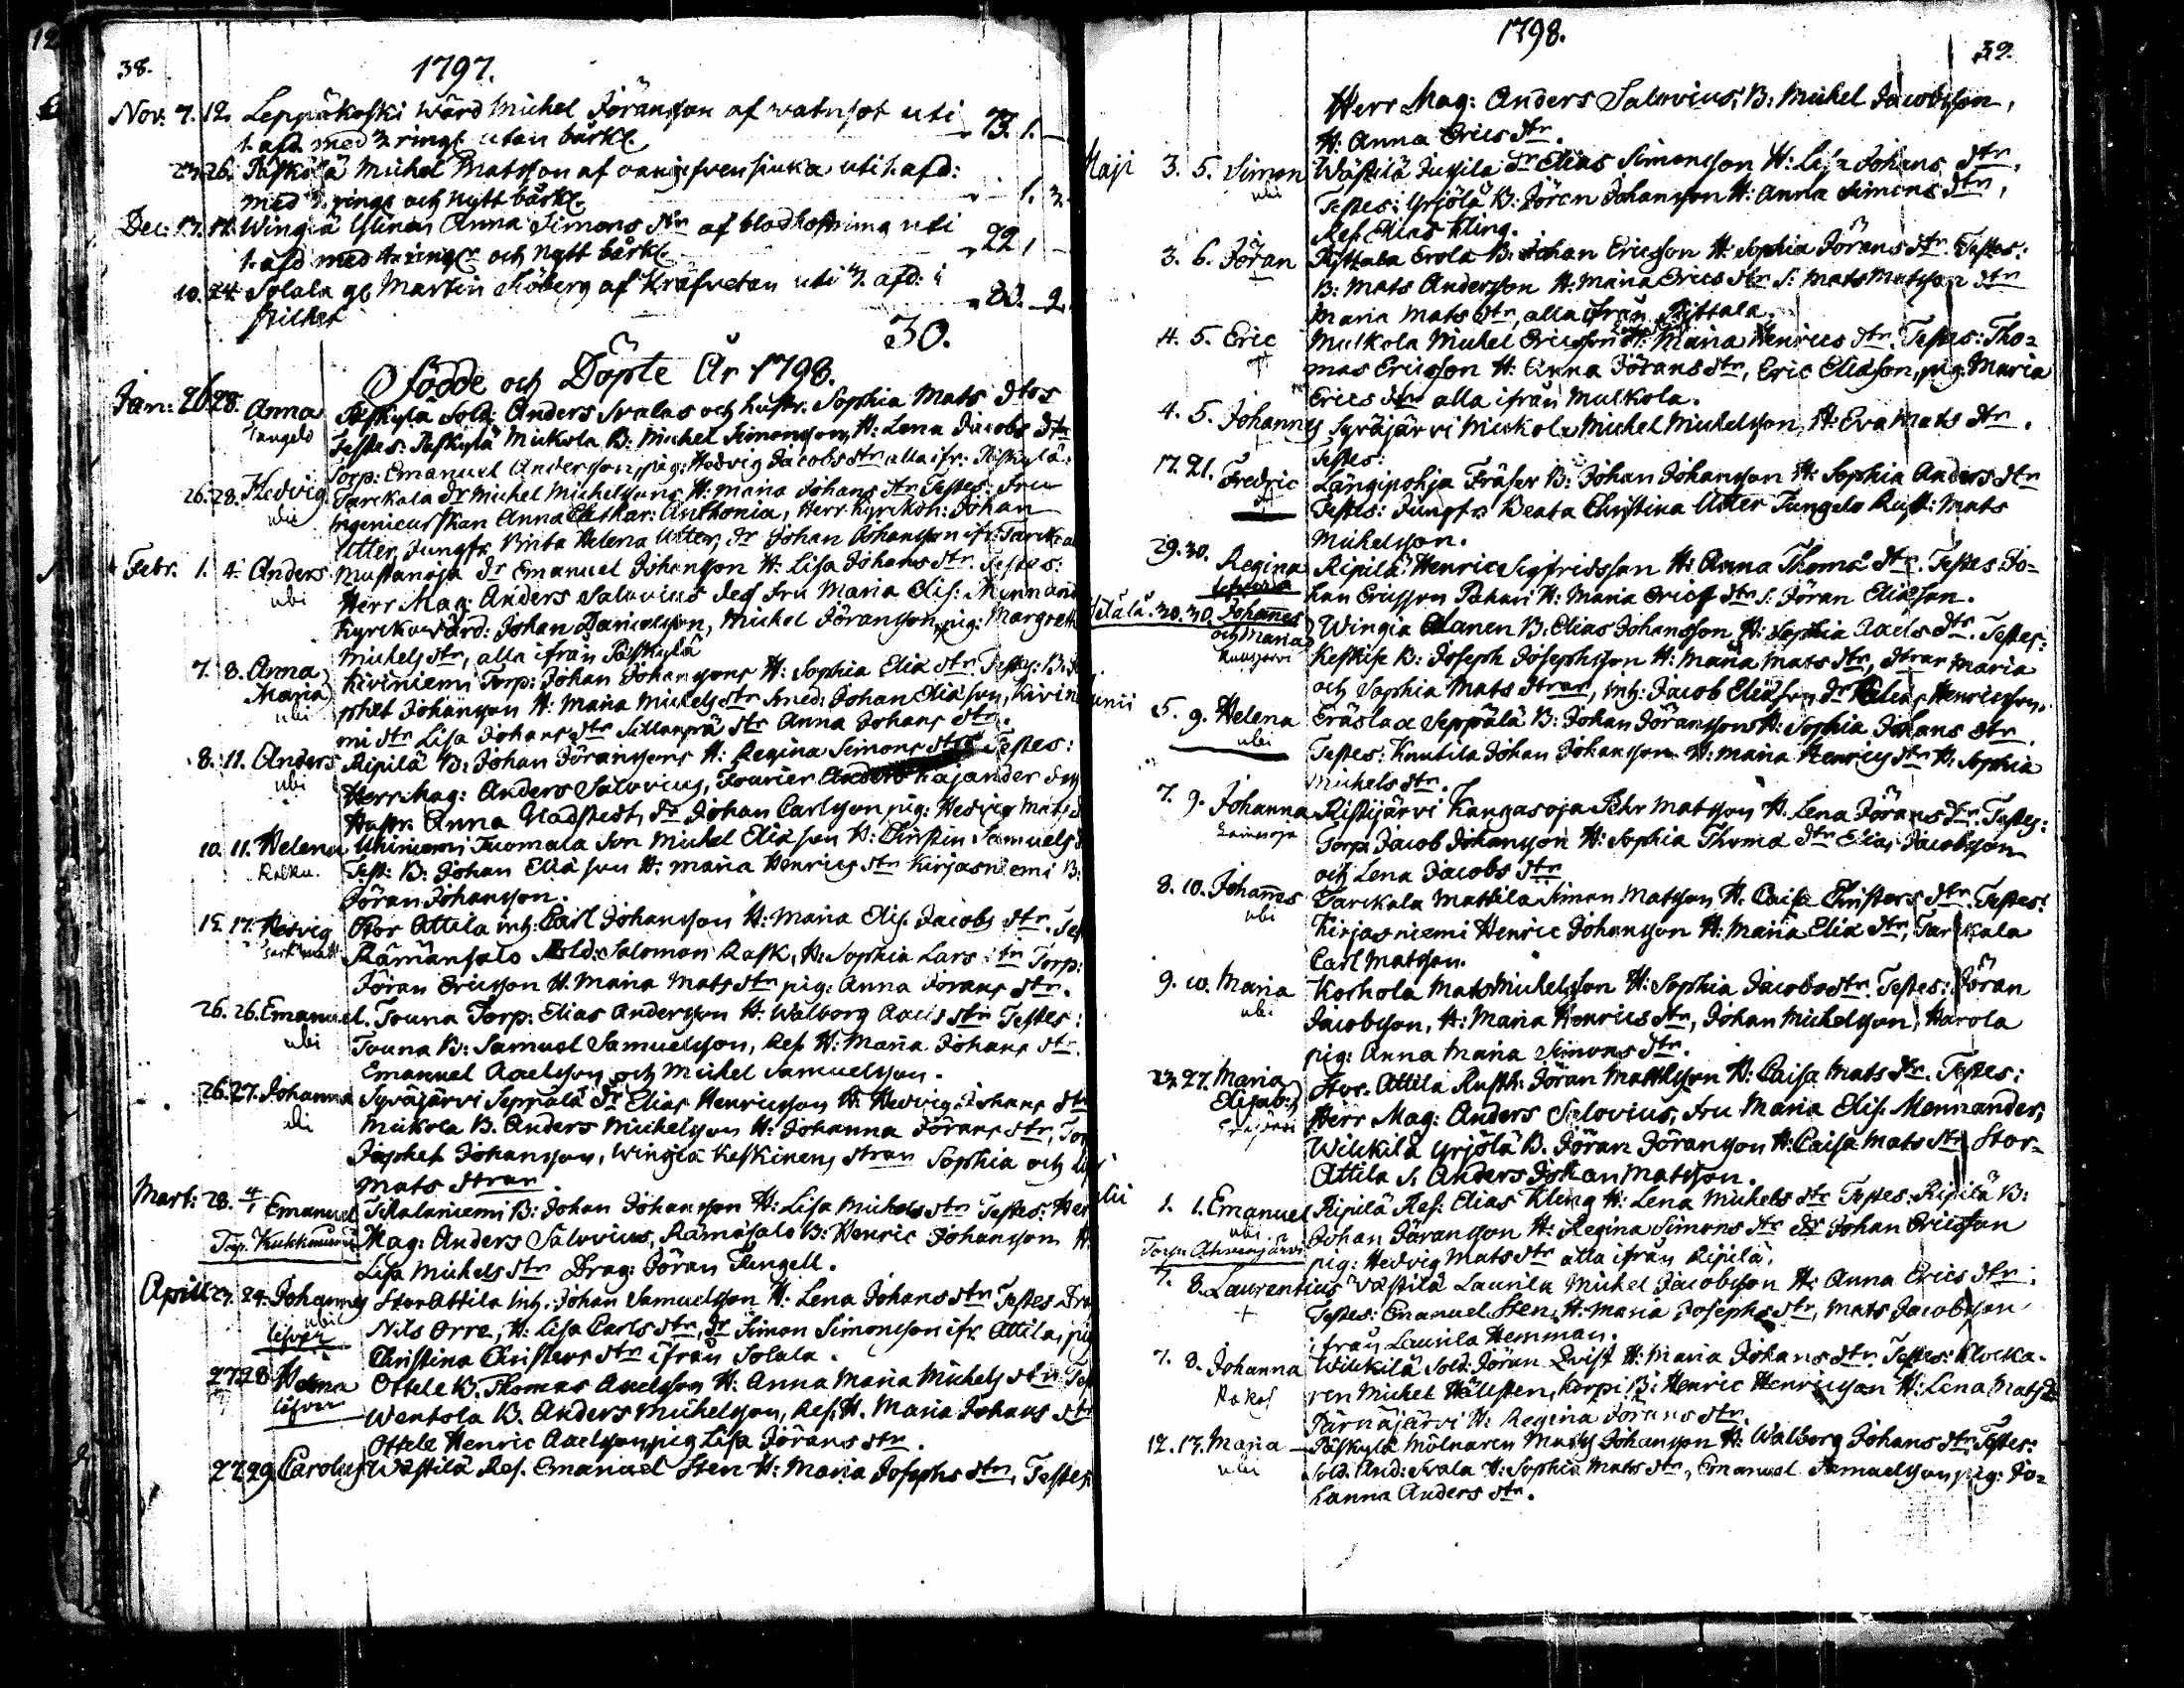 38.
1797.
Nov. 7. 12. Leppäkoski Wärd Michel Jöransson af watusot uti
1. afd. med 3. ringr utan bårkl. 73. 1. —
23. 26. Päskölä Michel Matsson af uti 1. afd:
med ringr och nytt bårkl. 1. 3.
Dec: 13. 17. Wingiä Anna Simons dtr af blodhostning uti
1. afd med 4. ringr och nytt bårkl. 22,
10. 24. Solala gl Martin Sköberg af Kräfvetan uti 3. afd: i
stilhet
30.
Födde och Döpte År 1798.
Jan: 26. 28. Anna Päskylä Sold: Anders Svalas och hustr. Sophia Mats dtrs
Tangelo Testes: Päskylä Mickola B: Michel Simonsson, H: Lena Jacobs dtr
Torp: Emanuel Andersson, pig: Hedvig Jacobs dtr alla ifr: Päskylä.
26. 28. Hedvig Tarckala dr Michel Michelssons H: Maria Johans dtr Testes: Fru
ubi Ingenieurskan Anna Cathar: Anthonia, Herr Kyrckoh: Johan
Utter, Jungfr Brita Helena Utter, dr Johan Johansson ifr: Tarckala
Febr. 1. 4. Anders Mustanoja dr Emanuel Johansson H: Lisa Johans dtr. Testes:
ubi Herr Mag: Anders Salovius dess Fru Maria Elis: Mennander
Kyrckovärd: Johan Danielsson, Michel Jöransson, pig: Margreth
Michels dtr, alla ifrån Päskylä
7. 8. Anna Kiviniemi Torp: Johan Johanssons H: Sophia Eliæ dtr. Testes: B:
Maria Johansson H: Maria Michels dtr Smed: Johan Eliæson, Kivinie
ubi mi dtr Lisa Johans dtr Sillanpää dtr Anna Johans dtr.
8. 11. Anders Ripilä B: Johan Jöranssons H: Regina Simons dtr Testes:
ubi Herr Mag: Anders Salovius, Fourier Anders Kajander dess
Hustr. Anna Gladstedt, dr Johan Carlsson pig: Hedvig Mats
10. 11. Helena Uhiniemi Tuomala Son Michel Eliæson H: Christin Samuels
Test: B: Johan Eliæson H: Maria Henrics dtr Kirjasniemi B:
Jöran Johansson.
15. 17. Hedvig Stor Attila Inh: Carl Johansson H: Maria Elis: Jacobs dtr. Tes
Rämänsalo Sold: Salomon Rask, H: Sophia Lars dtr Torp:
Jöran Ericsson H: Maria Mats dtr pig: Anna Jörans dtr.
26. 26. Emanuel. Touna Torp: Elias Andersson H: Walborg Axels dtr Testes:
ubi Touna B: Samuel Samuelsson, Res. H: Maria Johans dtr.
Emanuel Axelsson och Michel Samuelsson.
26. 27. Johanna Syväjärvi Seppälä dr Elias Henricsson H: Hedvig Johans dtr
ubi Mickola B. Anders Michelsson H: Johanna Jörans dtr, Tor
Johansson, Wingiä Keskinens dtran Sophia och
Mats dtran.
Mart: 28. 4/1 Emanuel Tikalaniemi B: Johan Johansson H: Lisa Michels dtr Testes: Her
Mag: Anders Salovius, Rämäsalo B: Henric Johansson H.
Lisa Michels dtr Drag: Jöran Tungell.
April 23. 24. Johannes Stor Attila Inh. Johan Samuelsson H: Lena Johans dtr Testes
ubi Nils Orre, H: Lisa Carls dtr, dr Simon Simonsson ifr Attila, pig
Christina Christers dtr ifrån Solala.
27. 28. Helena Ottele B. Thomas Axelsson H: Anna Maria Michels dtr Tes
Wentola B. Anders Michelsson, Res: H. Maria Johans dtr
Ottele Henric Axelsson, pig Lisa Jörans dtr.
27. 29. Carolus Wästilä Res. Emanuel Sten H: Maria Josephs dtr, Testes:
1798.
39.
Herr Mag: Anders Salovius, B: Michel Jacobsson,
H: Anna Erics dtr.
Maji 3. 5. Simon Wästilä Jussila dr Elias Simonsson H: Lisa Johans dtr.
ubi Testes: Yrjölä B: Jöran Johansson H: Anna Simons dtr,
Res. Elias Kling.
3. 6. Jöran Pittala Erola B: Johan Ericsson H: Sophia Jörans dtr. Testes:
B: Mats Andersson H: Maria Erics dtr S: Mats Matsson dtr
Maria Mats dtr, alla ifrån Pittala.
4. 5. Eric Mulkola Michel Ericsson H: Maria Henrics dtr. Testes: Tho-
mas Ericsson H: Anna Jörans dtr, Eric Eliæson, pig: Maria
Erics dtr alla ifrån Mulkola.
4. 5. Johannes Syväjärvi Mickola Michel Michelsson, H: Eva Mats dtr.
Testes:
17. 21. Fredric Längipohja Fräser B: Johan Johansson H: Sophia Anders dtr
Testes: Jungfr: Beata Christina Utter Tungelo Rust: Mats
Michelsson.
29. 30. Regina Ripilä Henric Sigfridsson H: Anna Thomæ dtr. Testes: Jo-
han Ericsson Pohari H: Maria Erics dtr S: Jöran Eliæson.
30. 30. Johannes Wingiä Alanen B. Elias Johansson H: Sophia Axels dtr. Testes:
och Maria Keskise B: Joseph Josephsson H: Maria Mats dtr, dtran Maria
och Sophia Mats dtran, Inh: Jacob Eliæson dr Elias Henricsson.
Junii 5. 9. Helena Eräslax Seppälä B: Johan Jöransson H: Sophia Johans dtr.
ubi Testes: Knutila Johan Johansson H: Maria Henrics dtr H: Sophia
Michels dtr.
7. 9. Johanna Ristijärvi Kangasoja Pehr Matsson H. Lena Jörans dtr. Testes:
Torp: Jacob Johansson H: Sophia Thomæ dtr Elias Jacobsson
och Lena Jacobs dtr.
8. 10. Johannes Tarckala Mattila Simon Matsson H. Caisa Christers dtr. Testes:
ubi Kirjasniemi Henric Johansson H: Maria Eliæ dtr, Tarckala
Carl Matsson.
9. 10. Maria Korhola Mats Michelsson H: Sophia Jacobs dtr. Testes: Jöran
ubi Jacobsson, H: Maria Henrics dtr, Johan Michelsson, Harola
pig: Anna Maria Simons dtr.
23. 27. Maria Stor-Attila Rusth: Jöran Matthsson H: Caisa Mats dtr. Testes:
Elisab: Herr Mag: Anders Salovius, Fru Maria Elis. Mennander,
Wilckilä Yrjölä B. Jöran Jöransson H: Caisa Mats dtr Stor-
Attila S. Anders Johan Matsson.
Julii 1. 1. Emanuel Ripilä Res: Elias Kling H: Lena Michels dtr Testes: Ripilä B:
ubi. Johan Jöransson H: Regina Simons dtr dr Johan Ericsson
pig: Hedvig Mats dtr alla ifrån Ripilä.
7. 8. Laurentius Västilä Laurila Michel Jacobsson H: Anna Erics dtr.
+ Testes: Emanuel Sten, H: Maria Josephs dtr, Mats Jacobsson
ifrån Laurila Hemman.
7. 8. Johanna Wilckilä Sold: Jöran Qvist H: Maria Johans dtr. Testes: Klocka-
ren Michel Hällsten, Korpi B: Henric Henricsson H: Lena Mats
Pärnäjärvi H: Regina Jörans dtr.
12. 13. Maria Päskylä Mölnaren Matts Johansson H: Walborg Johans dtr. Testes:
ubi Sold. And: Svala H: Sophia Mats dtr, Emanuel Samuelsson pig: Jo-
hanna Anders dtr.